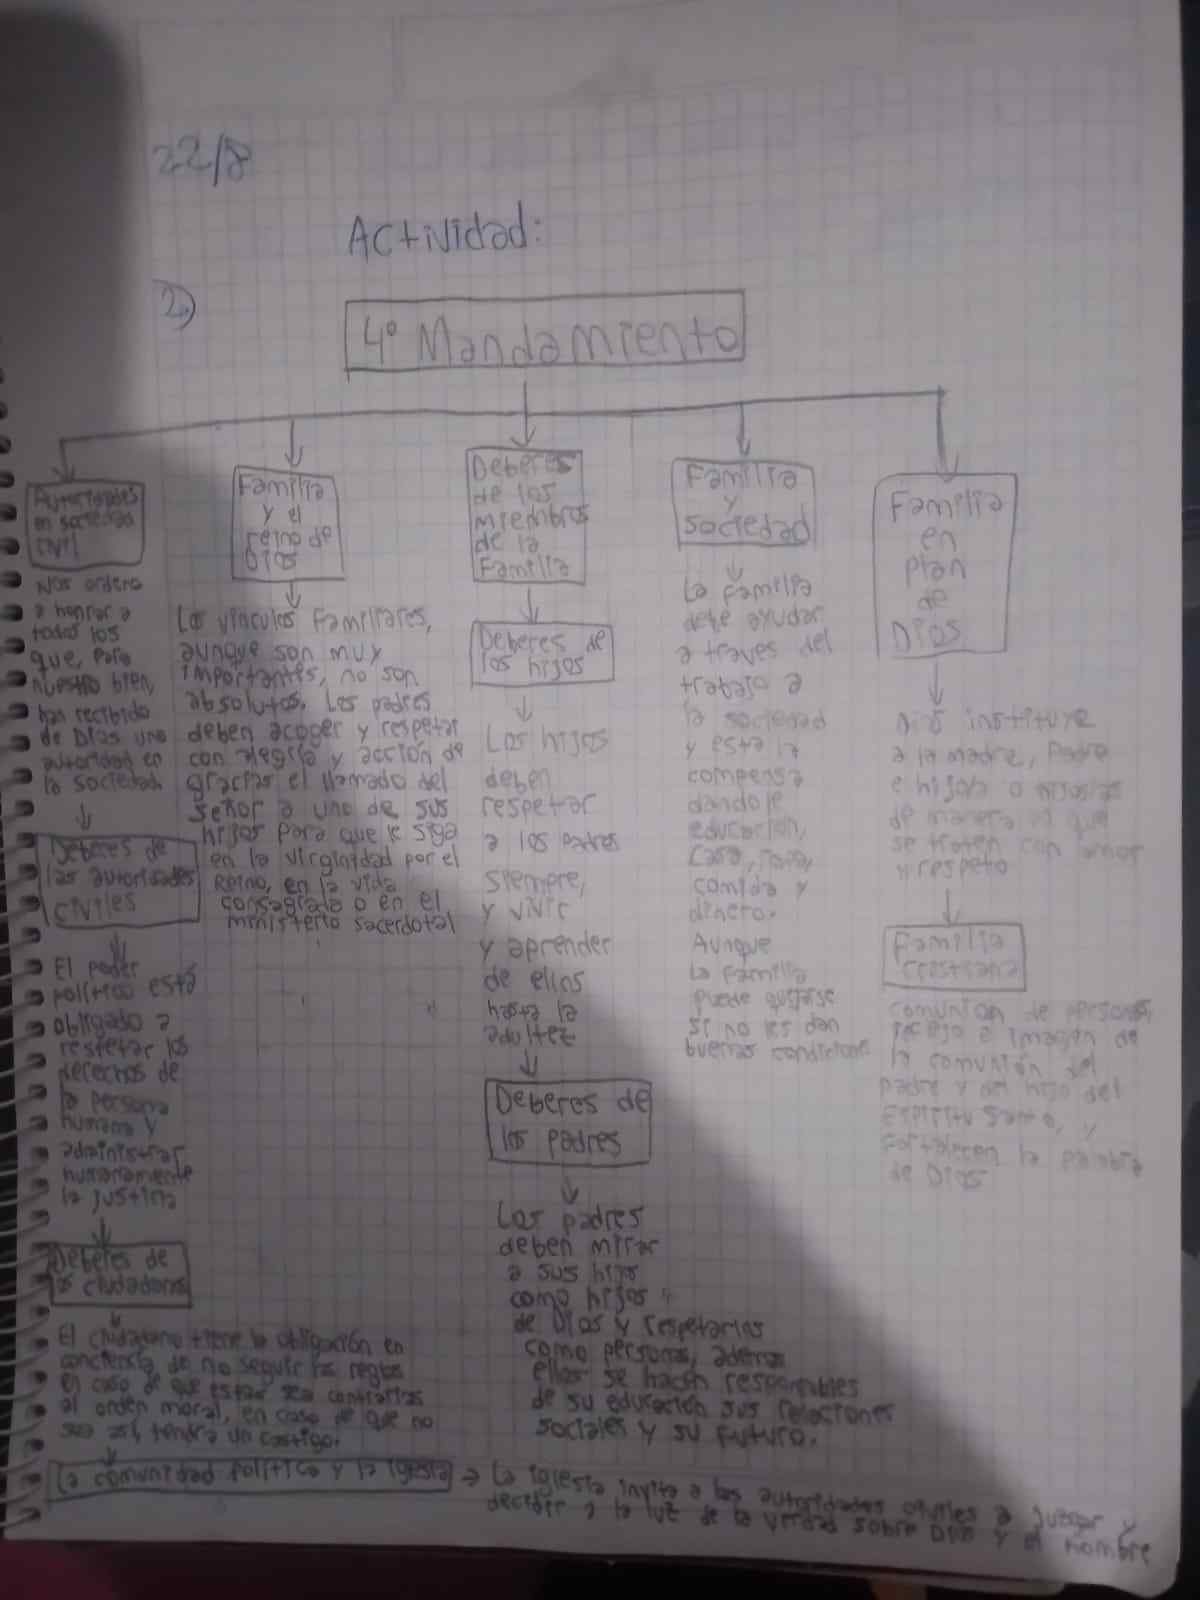 22/8
Actividad:
2)
4º Mandamiento
Autoridades
en sociedad
civil
Nos ordena
a honrar a
todos los
que, para
nuestro bien,
han recibido
de Dios una
autoridad en
la sociedad
Deberes de
las autoridades
civiles
El poder
político está
obligado a
respetar los
derechos de
la persona
humana y
administrar
humanamente
la justicia
Deberes de
los ciudadanos
El ciudadano tiene la obligación en
conciencia de no seguir las reglas
en caso de que estas sea contrarias
al orden moral, en caso de que no
sea así, tendrá un castigo.
La comunidad política y la iglesia → La iglesia invita a las autoridades civiles a juzgar y
decidir a la luz de la verdad sobre Dios y el hombre
Familia
y el
reino de
Dios
Los vínculos familiares,
aunque son muy
importantes, no son
absolutos. Los padres
deben acoger y respetar
con alegría y acción de
gracias el llamado del
señor a uno de sus
hijos para que le siga
en la virginidad por el
Reino, en la vida
consagrada o en el
ministerio sacerdotal
Deberes
de los
miembros
de la
Familia
Deberes de
los hijos
Los hijos
deben
respetar
a los padres
siempre,
y vivir
y aprender
de ellos
hasta la
adultez
Deberes de
los padres
Los padres
deben mirar
a sus hijos
como hijos
de Dios y respetarlos
como personas, además
ellos se hacen responsables
de su educación sus relaciones
sociales y su futuro.
Familia
y
sociedad
La familia
debe ayudar
a traves del
trabajo a
la sociedad
y esta la
compensa
dandole
educación,
casa, ropa,
comida y
dinero.
Aunque
la familia
puede quejarse
si no les dan
buenas condiciones
Familia
en
plan
de
Dios
Dios instituye
a la madre, padre
e hijo/a o hijos/as
de manera en que
se traten con amor
y respeto
Familia
cristiana
comunión de personas,
reflejo e imagen de
la comunión del
padre y del hijo del
Espíritu Santo, y
fortalecen la palabra
de Dios